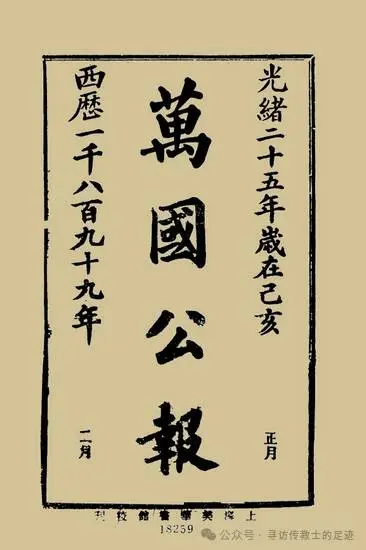 光緒二十五年歲在己亥
正月
萬國公報
西歷一千八百九十九年
二月
上海美華書館校刊
18259
公众号 · 寻访传教士的足迹